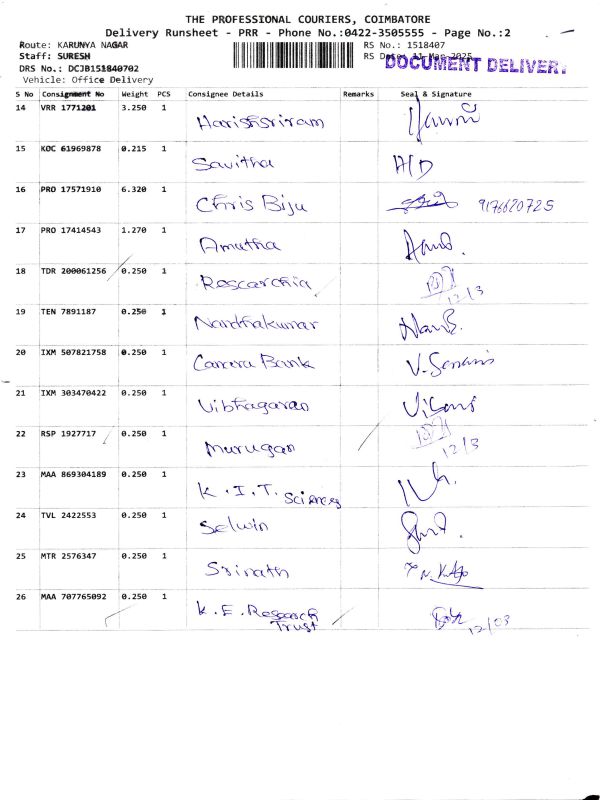 THE PROFESSIONAL COURIERS, COIMBATORE
Delivery Runsheet - PRR - Phone No.:0422-3505555 - Page No.:2
Route: KARUNYA NAGAR
RS No.: 1518407
Staff: SURESH
RS Date: 11-Mar-2025
DOCUMENT DELIVERY
DRS No.: DCJB151840702
Vehicle: Office Delivery
S No Consignment No Weight PCS Consignee Details Remarks Seal & Signature
14 VRR 1771201 3.250 1 Harishsriram
15 KOC 61969878 0.215 1 Savitha H/D
16 PRO 17571910 6.320 1 Chris Biju 9176620725
17 PRO 17414543 1.270 1 Amutha
18 TDR 200061256 0.250 1 Rescarchia 12/3
19 TEN 7891187 0.250 1 Nandhakumar
20 IXM 507821758 0.250 1 Canara Bank
21 IXM 303470422 0.250 1 Vibhagaran
22 RSP 1927717 0.250 1 Murugan 12/3
23 MAA 869304189 0.250 1 K.I.T. Sciences
24 TVL 2422553 0.250 1 Selwin
25 MTR 2576347 0.250 1 Srinath
26 MAA 707765092 0.250 1 K.E. Research Trust 12/03